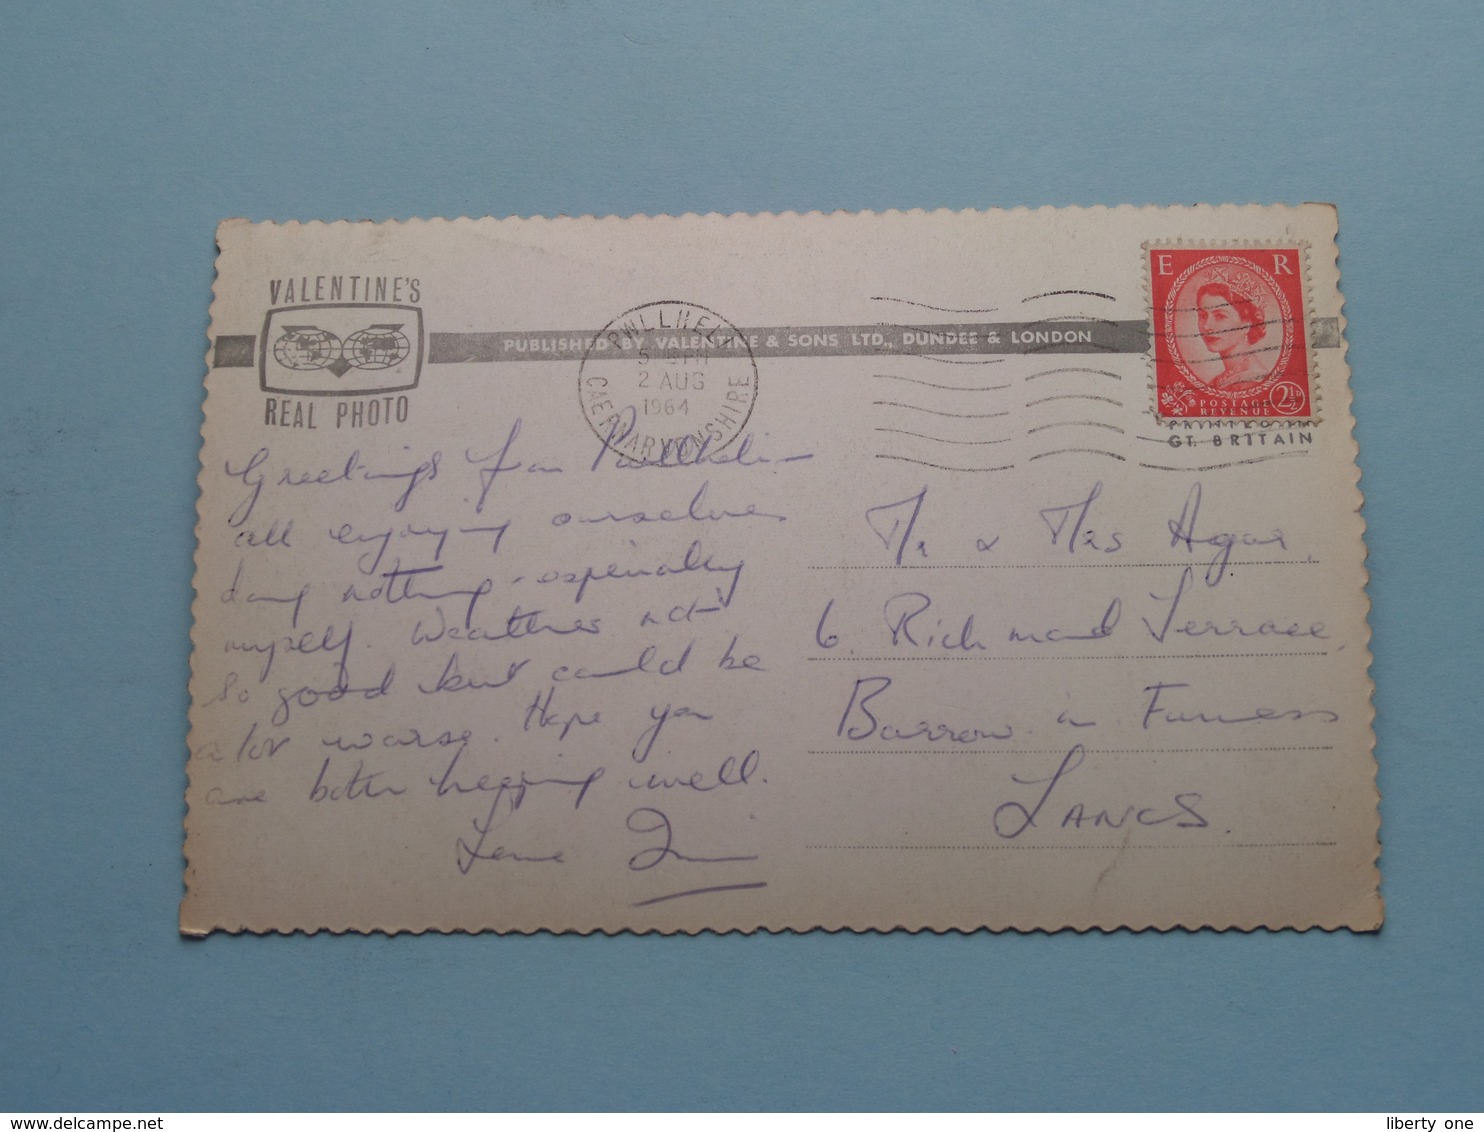 VALENTINE'S
REAL PHOTO
PUBLISHED BY VALENTINE & SONS LTD., DUNDEE & LONDON
PWLLHELI
2 AUG
1964
CAERNARVONSHIRE
E R
POSTAGE
REVENUE
2½D
GT. BRITAIN
Greetings from Pwllheli –
all enjoying ourselves
doing nothing – especially
myself. Weather not
so good but could be
a lot worse. Hope you
are both keeping well.
Love
Mr & Mrs Agar,
6. Richmond Terrace,
Barrow in Furness
LANCS.
liberty one
www.delcampe.net